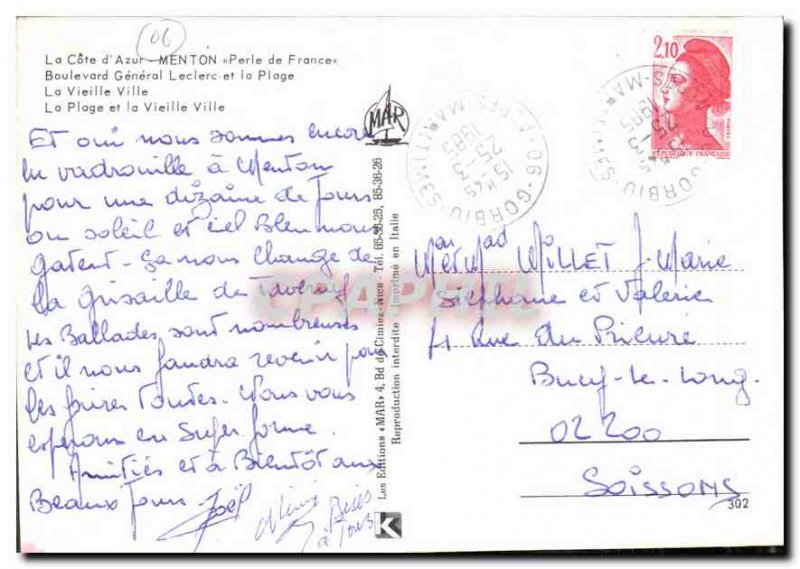 06
La Côte d'Azur - MENTON «Perle de France»
Boulevard Général Leclerc et la Plage
La Vieille Ville
La Plage et la Vieille Ville
Et oui nous sommes encore
en vadrouille à Menton
pour une dizaine de jours
ou soleil et ciel Bleu nous
gatent - ça nous change de
la grisaille de Taverny
les Ballades sont nombreuses
et il nous faudra revenir pour
les faires toutes. Nous vous
esperons en Super forme.
Amitiés et à Bientôt aux
Beaux Jours. Joël
Bises
à Tous
MAR
Les Editions «MAR» 4, Bd de Cimiez - Nice - Tél. 85-36-25, 85-36-26
Reproduction interdite - Imprimé en Italie
K
2,10
POSTES
REPUBLIQUE FRANÇAISE
06-GORBIO
ALPES-MARITIMES
15 H 45
25-3
1985
06-GORBIO
ALPES-MARITIMES
25-3
1985
Mr et Mad WILLET J. Marie
Stéphane et Valérie
4 Rue du Prieuré
Bucy-le-Long.
02200
Soissons
302
CPAPHIL